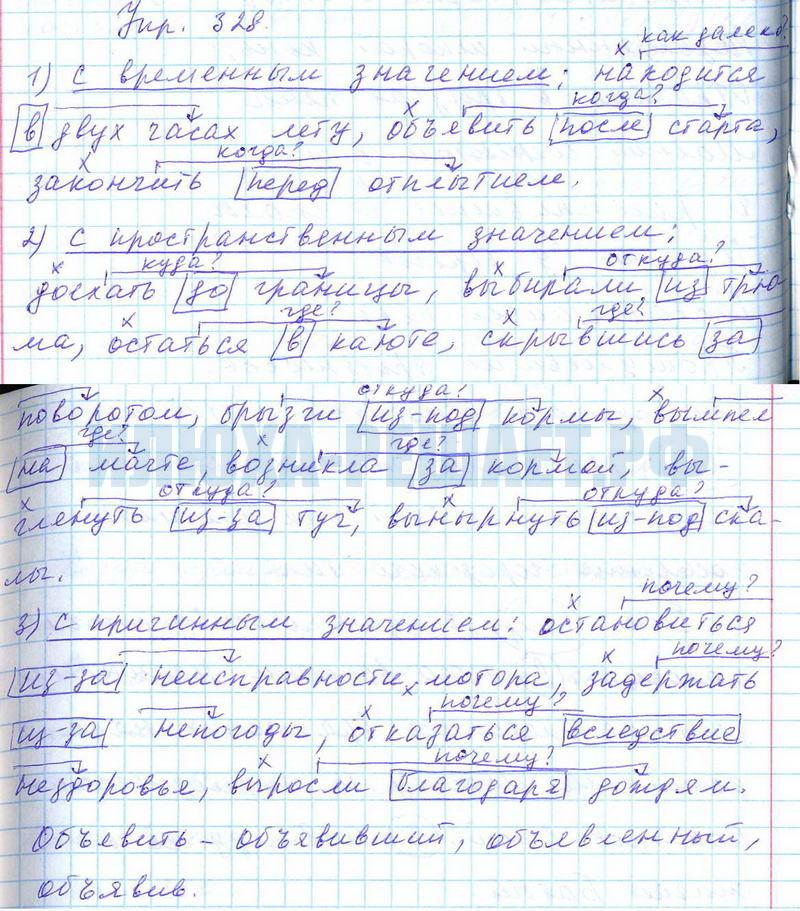 Упр. 328.
как далеко?
1) с временным значением: находится
когда?
в двух часах лету, объявить после старта,
когда?
закончить перед отплытием.
2) с пространственным значением:
куда? откуда?
доехать до границы, выбирали из трю-
где? где?
ма, остаться в каюте, скрывшись за
откуда?
поворотом, брызги из-под кормы, вымпел
где? где?
на мачте, возникла за кормой, вы-
откуда? откуда?
глянуть из-за туч, вынырнуть из-под ска-
лы.
почему?
3) с причинным значением: остановиться
почему?
из-за неисправности мотора, задержать
почему?
из-за непогоды, отказаться вследствие
почему?
нездоровья, выросли благодаря дождям.
Объявить – объявивший, объявленный,
объявив.
ИЛЮХА-РЕШАЕТ.РФ